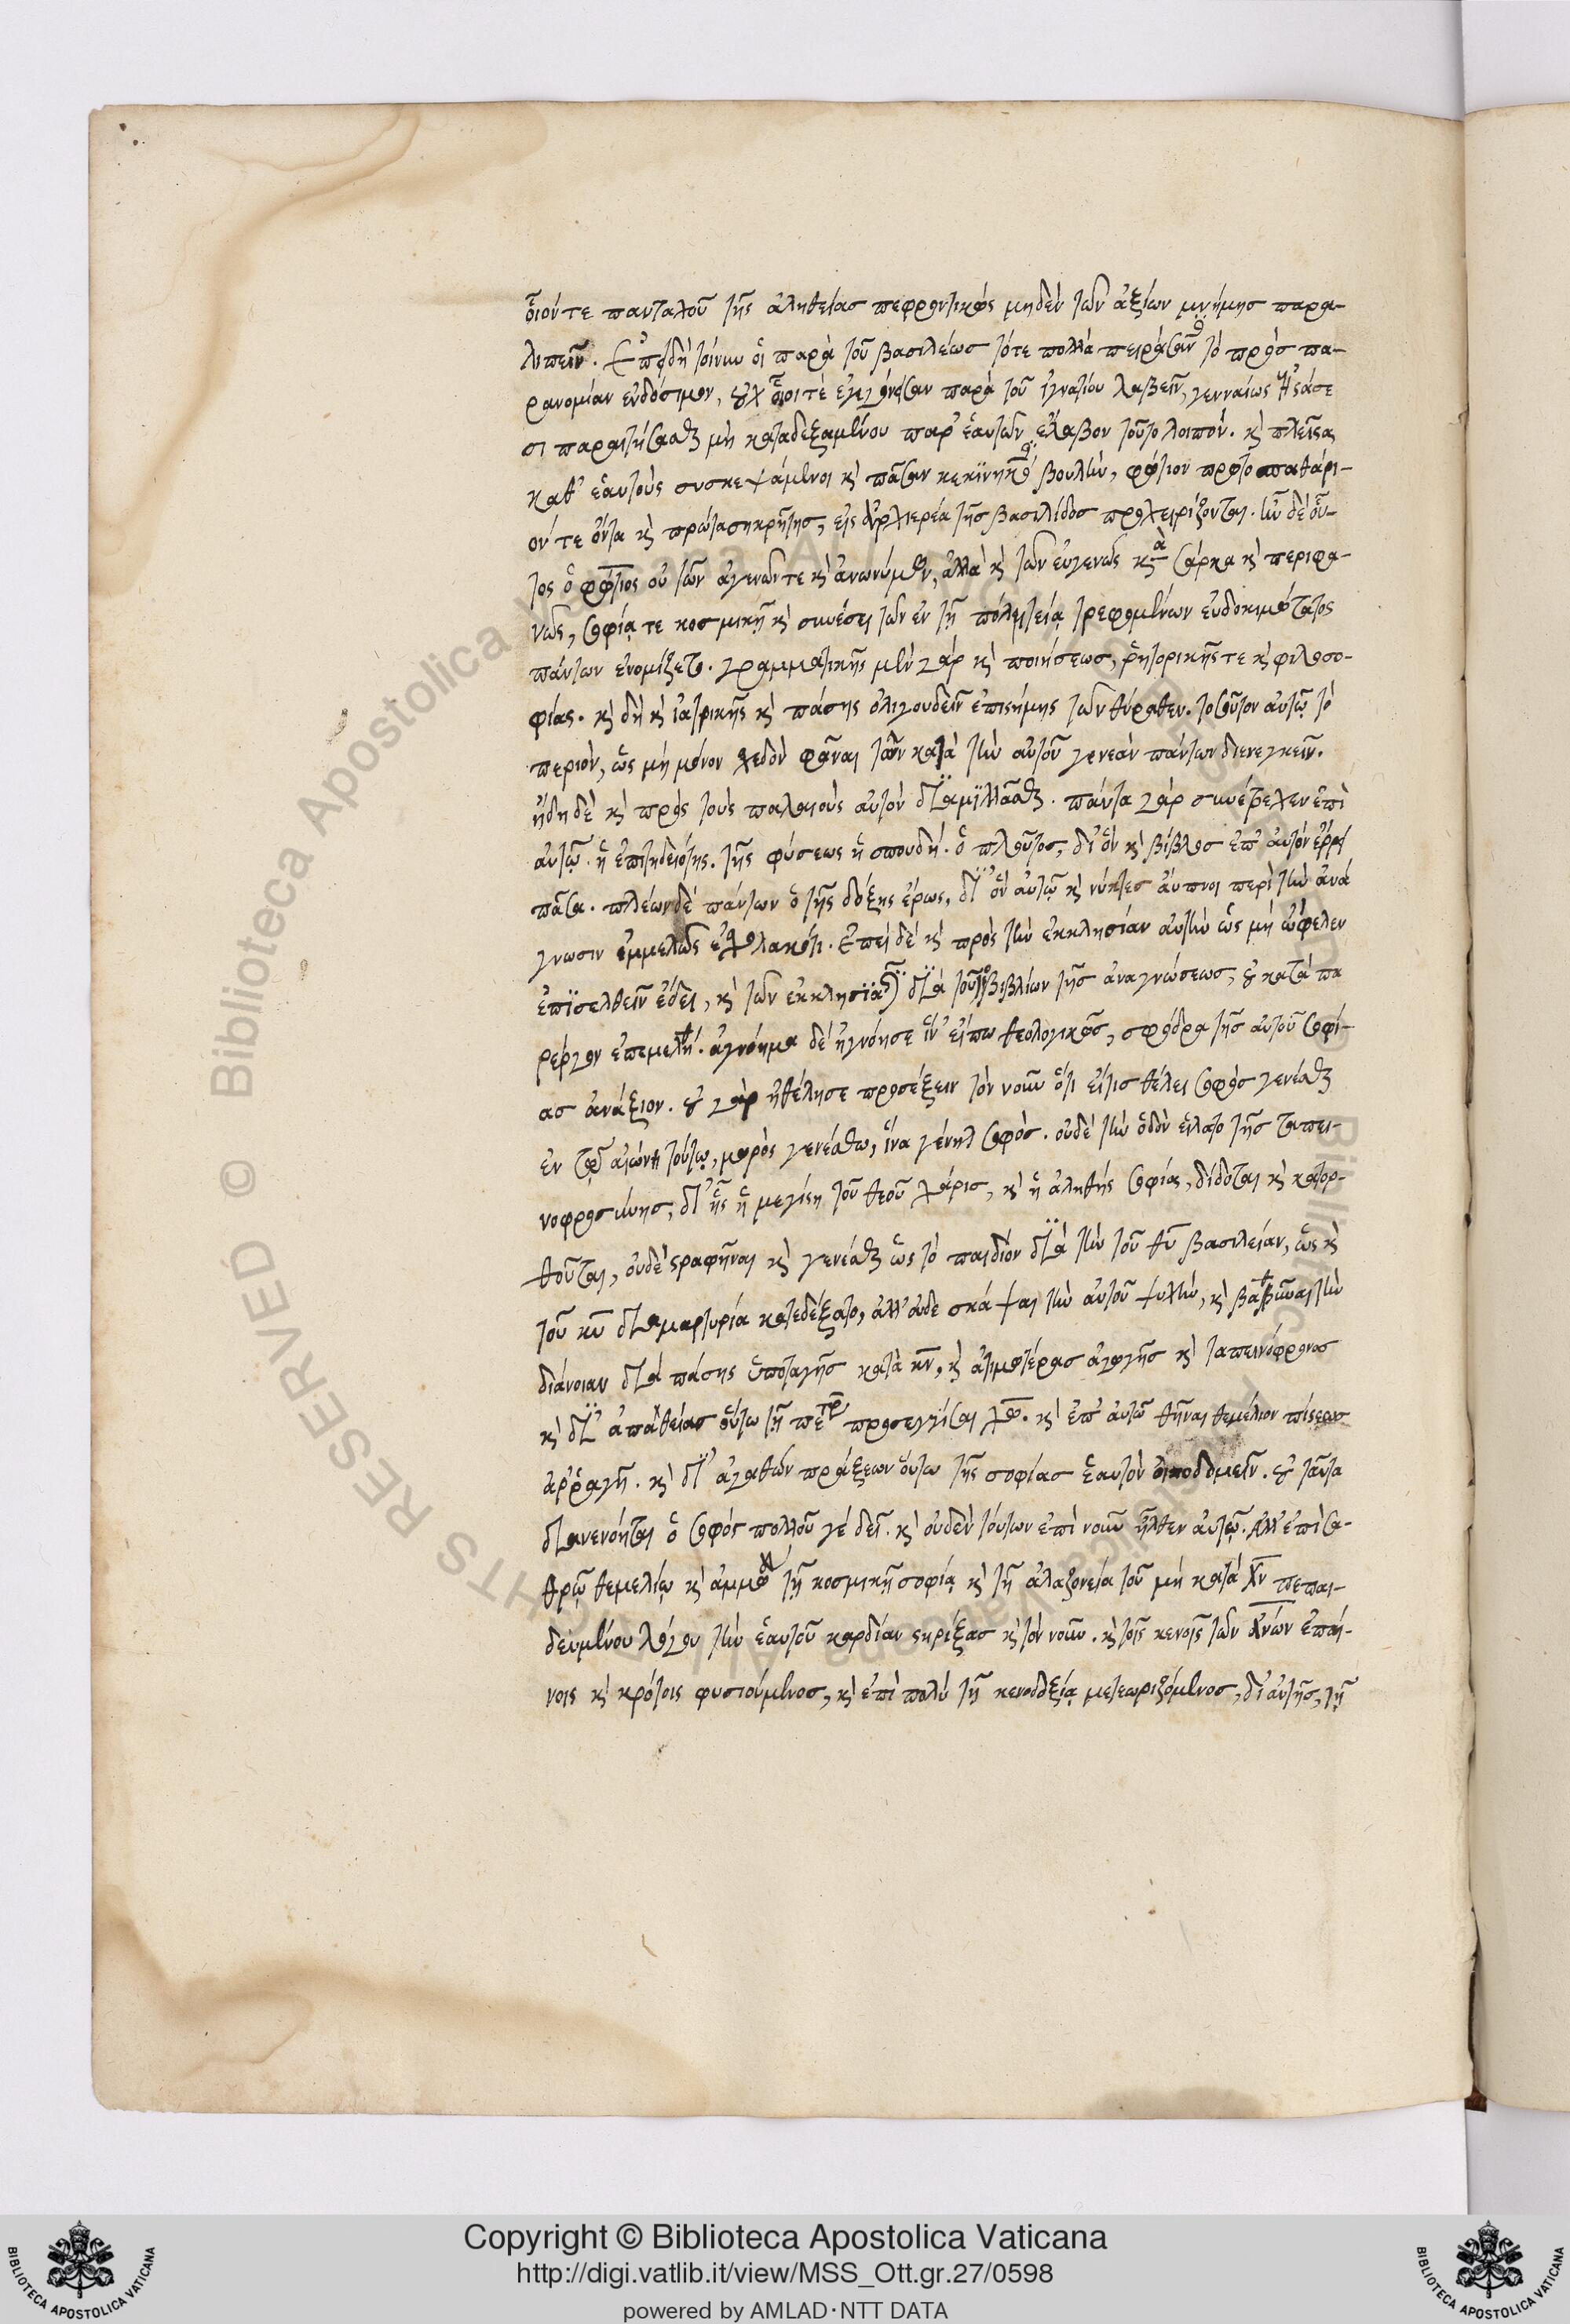 οἷόν τε πανταχοῦ τῆς ἀληθείας πεφροντικὼς μηδὲν τῶν ἀξίων μνήμης παρα-
λιπεῖν. Ἐπειδὴ τοίνυν οἱ παρὰ τοῦ βασιλέως τότε πολλὰ πειράσαντες τὸ πρὸς πα-
ρανομίαν ἐνδόσιμον, οὐχ οἷοί τε ἐγεγόνεσαν παρὰ τοῦ ἰγνατίου λαβεῖν, γενναίως
σι παραιτήσασθαι μὴ καταδεξαμένου παρ' ἑαυτῶν ἔλαβον τοῦτο λοιπόν. κὶ πλεῖστα
καθ' ἑαυτοὺς συσκεψάμενοι κὶ πᾶσαν κεκινηκότες βουλὴν, φώτιον πρωτοσπαθάρι-
όν τε ὄντα κὶ πρωτασηκρῆτης, εἰς ἀρχιερέα τῆς βασιλίδος προχειρίζονται. ἦν δὲ οὗ-
τος ὁ φώτιος οὐ τῶν ἀγενῶν τε κὶ ἀνωνύμων, ἀλλὰ κὶ τῶν εὐγενῶν κατὰ σάρκα κὶ περιφα-
νῶν, σοφίᾳ τε κοσμικῇ κὶ συνέσει τῶν ἐν τῇ πολιτείᾳ στρεφομένων εὐδοκιμώτατος
πάντων ἐνομίζετο. γραμματικῆς μὲν γὰρ κὶ ποιήσεως, ῥητορικῆς τε κὶ φιλοσο-
φίας. κὶ δὴ κὶ ἰατρικῆς κὶ πάσης ὀλίγου δεῖν ἐπιστήμης τῶν θύραθεν. τοσοῦτον αὐτῷ τὸ
περιὸν, ὡς μὴ μόνον σχεδὸν φάναι τῶν κατὰ τὴν αὐτοῦ γενεὰν πάντων διενεγκεῖν.
ἤδη δὲ κὶ πρὸς τοὺς παλαιοὺς αὐτὸν διαμιλλᾶσθαι. πάντα γὰρ συνέτρεχεν ἐπ'
αὐτῷ. ἡ ἐπιτηδειότης. τῆς φύσεως ἡ σπουδή. ὁ πλοῦτος, δι' ὃν κὶ βίβλος ἐπ' αὐτὸν ἔρρει
πᾶσα. πλέον δὲ πάντων ὁ τῆς δόξης ἔρως, δι' ὃν αὐτῷ κὶ νύκτες ἄυπνοι περὶ τὴν ἀνά
γνωσιν ἐμμελῶς ἐσχολακότι. ἐπεὶ δὲ κὶ πρὸς τὴν ἐκκλησίαν αὐτὴν ὡς μὴ ὤφελεν
ἐπεισελθεῖν ἔδει, κὶ τῶν ἐκκλησια διὰ τοῦτο βιβλίων τῆς ἀναγνώσεως, οὐ κατὰ πά
ρεργον ἐπεμελήθη. ἀγνόημα δὲ ἠγνόησε ἵν' εἴπω θεολογικῶς, σφόδρα τῆς αὐτοῦ σοφί-
ας ἀνάξιον. οὐ γὰρ ἠθέλησε προσέξειν τὸν νοῦν ὅτι εἴ τις θέλει σοφὸς γενέσθαι
ἐν τῷ αἰῶνι τούτῳ, μωρὸς γενέσθω, ἵνα γένηται σοφός. οὐδὲ τὴν ὁδὸν εἵλατο τῆς ταπει-
νοφροσύνης, δι' ἧς ἡ μεγίστη τοῦ θεοῦ χάρις, κὶ ἡ ἀληθὴς σοφίας, δίδοται κὶ κατορ-
θοῦται, οὐδὲ στραφῆναι κὶ γενέσθαι ὡς τὸ παιδίον διὰ τὴν τοῦ θυ βασιλείαν, ὡς κὶ
τοῦ κυ διαμαρτυρία κατεδέξατο, ἀλλ' οὐδὲ σκάψαι τὴν αὐτοῦ ψυχὴν, κὶ βαθῦναι τὴν
διάνοιαν διὰ πάσης ὑποταγῆς κατὰ κν, κὶ ἀτιμοτέρας ἀγωγῆς κὶ ταπεινόφρονος
κὶ δι' ἀπαθείας οὕτω τῇ πέτρᾳ προσεγγίσαι χω. κὶ ἐπ' αὐτῷ θῆναι θεμέλιον πίστεως
ἀρραγῆ. κὶ δι' ἀγαθῶν πράξεων οὕτω τῆς σοφίας ἑαυτὸν οἰκοδομεῖν. οὐ ταῦτα
διανενόηται ὁ σοφὸς πολλοῦ γε δεῖ. κὶ οὐδὲν τούτων ἐπὶ νοῦν ἦλθεν αὐτῷ. ἀλλ' ἐπὶ σα-
θρῷ θεμελίῳ κὶ ἀμμώδει τῇ κοσμικῇ σοφίᾳ κὶ τῇ ἀλαζονείᾳ τοῦ μὴ κατὰ χν πεπαι-
δευμένου λόγου τὴν ἑαυτοῦ καρδίαν στηρίξας κὶ τὸν νοῦν. κὶ τοῖς κενοῖς τῶν ἀνων ἐπαί-
νοις κὶ κρότοις φυσιούμενος, κὶ ἐπὶ πολὺ τῇ κενοδοξίᾳ μετεωριζόμενος, δι' αὐτῆς, τῇ
Copyright © Biblioteca Apostolica Vaticana
http://digi.vatlib.it/view/MSS_Ott.gr.27/0598
powered by AMLAD·NTT DATA